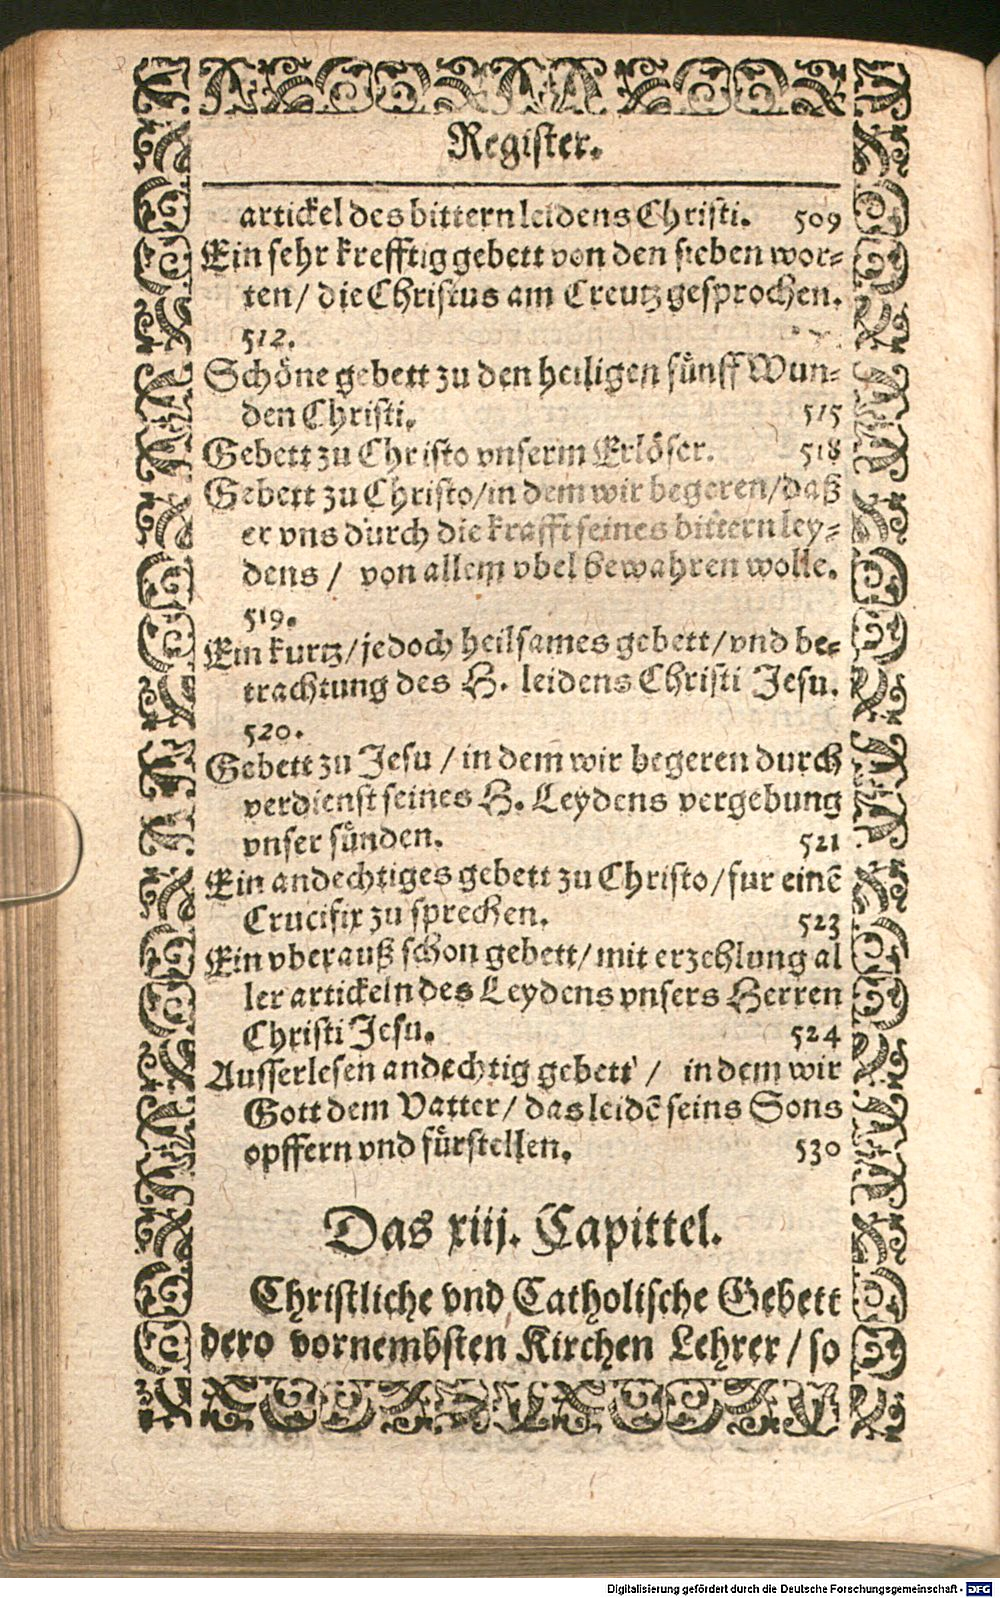 Register.
artickel des bittern leidens Christi. 509
Ein sehr krefftig gebett von den sieben wor-
ten/ die Christus am Creutz gesprochen.
512.
Schöne gebett zu den heiligen fünff Wun-
den Christi. 515
Gebett zu Christo vnserm Erlöser. 518
Gebett zu Christo/in dem wir begeren/daß
er vns durch die krafft seines bittern ley-
dens / von allem vbel bewahren wolle.
519.
Ein kurtz/jedoch heilsames gebett/vnd be-
trachtung des H. leidens Christi Jesu.
520.
Gebett zu Jesu / in dem wir begeren durch
verdienst seines H. Leydens vergebung
vnser sünden. 521
Ein andechtiges gebett zu Christo/fur einē
Crucifix zu sprechen. 523
Ein vberauß schon gebett/mit erzehlung al
ler artickeln des Leydens vnsers Herren
Christi Jesu. 524
Ausserlesen andechtig gebett / in dem wir
Gott dem Vatter/ das leidē seins Sons
opffern vnd fürstellen. 530
Das xiij. Capittel.
Christliche vnd Catholische Gebett
dero vornembsten Kirchen Lehrer/ so
Digitalisierung gefördert durch die Deutsche Forschungsgemeinschaft - DFG